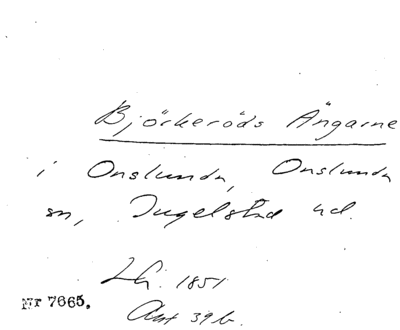 Björkeröds Ängarne
i Onslunda, Onslunda
sn, Ingelstad hd.
Lh. 1851
Akt 39 b.
Nr 7665.